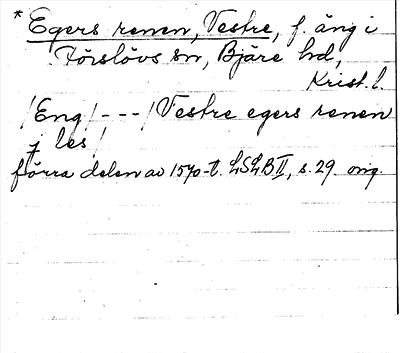 * Egers renen, Vestre, f. äng i
Förslövs sn, Bjäre hd,
Krist. l.
/Eng/---/Vestre egers renen
j les/
förra delen av 1570-t. LSLB II, s. 29. orig.